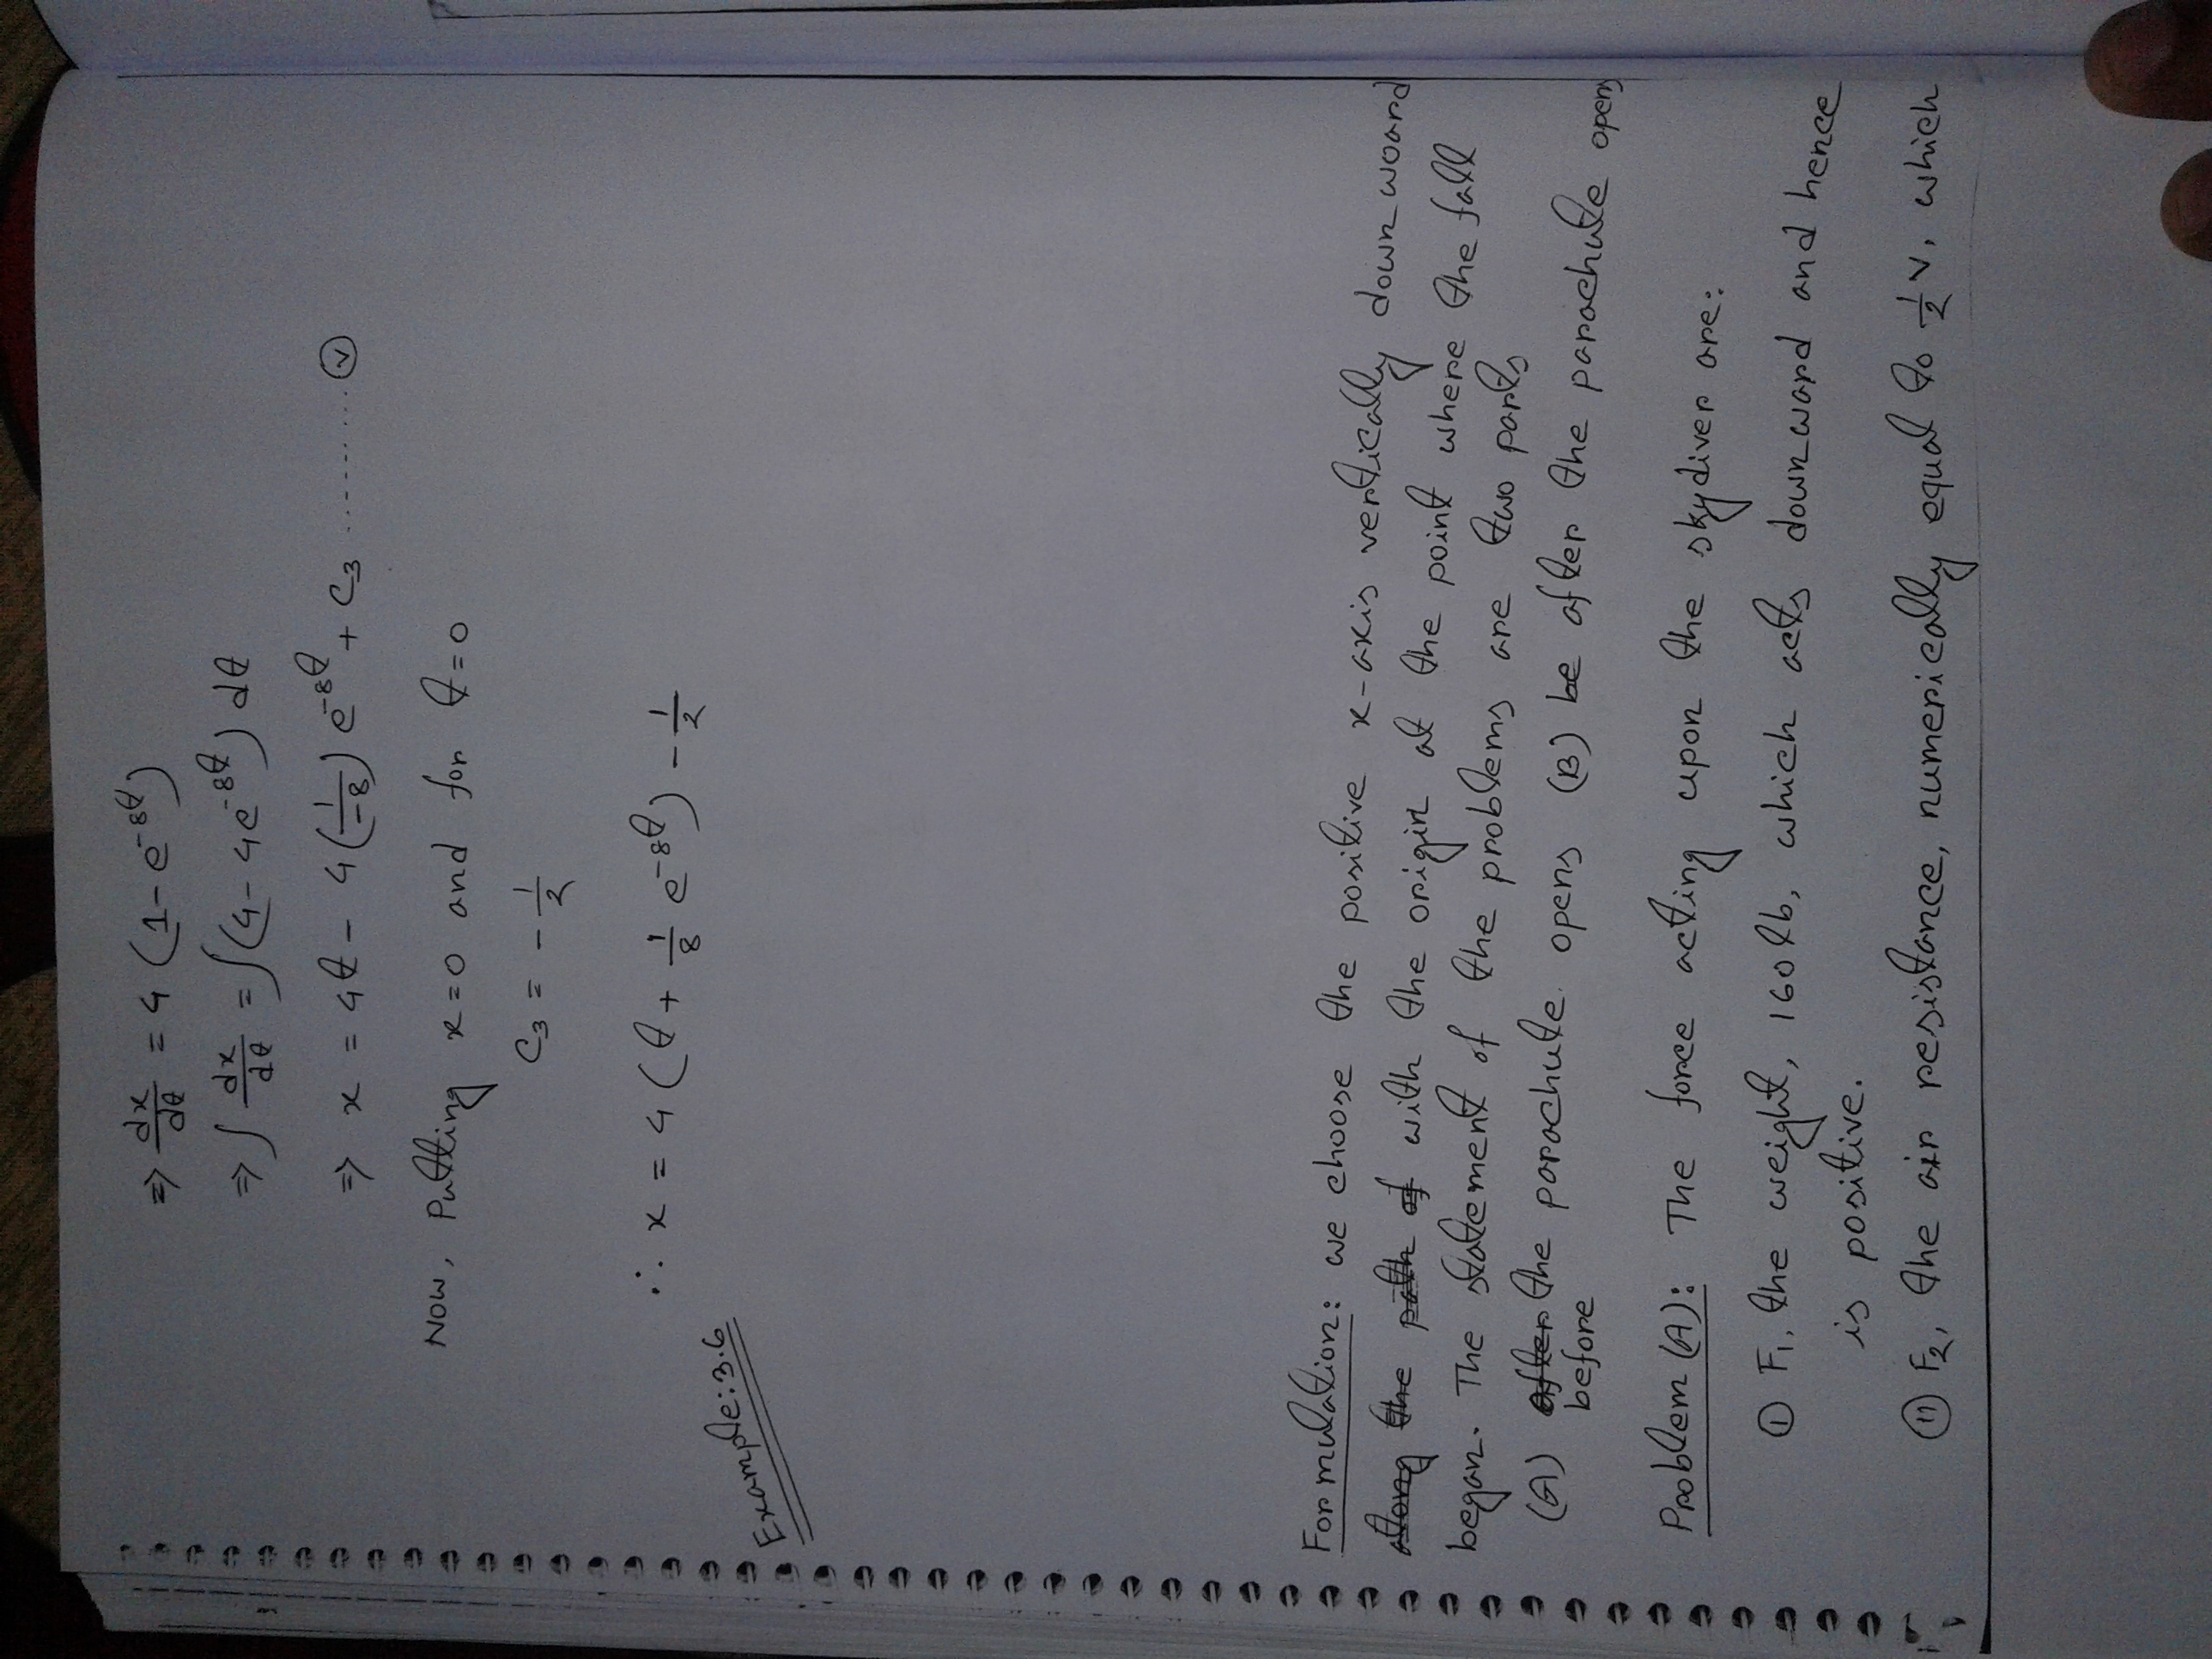 ⇒ dx/dt = 4 (1 - e^-8t)
⇒ ∫ dx/dt = ∫(4 - 4e^-8t) dt
⇒ x = 4t - 4(1/-8) e^-8t + C₃ ......... Ⓥ
Now, Putting x=0 and for t=0
C₃ = - 1/2
∴ x = 4 (t + 1/8 e^-8t) - 1/2
Example: 3.6
Formulation: we choose the positive x-axis vertically downwoard
along the path of with the origin at the point where the fall
began. The statement of the problems are two parts
(A) after the parachute opens (B) be after the parachute opens
before
Problem (A): The force acting upon the skydiver are:
① F₁, the weight, 160 lb, which acts downward and hence
is positive.
⑪ F₂, the air resistance, numerically equal to 1/2 v, which